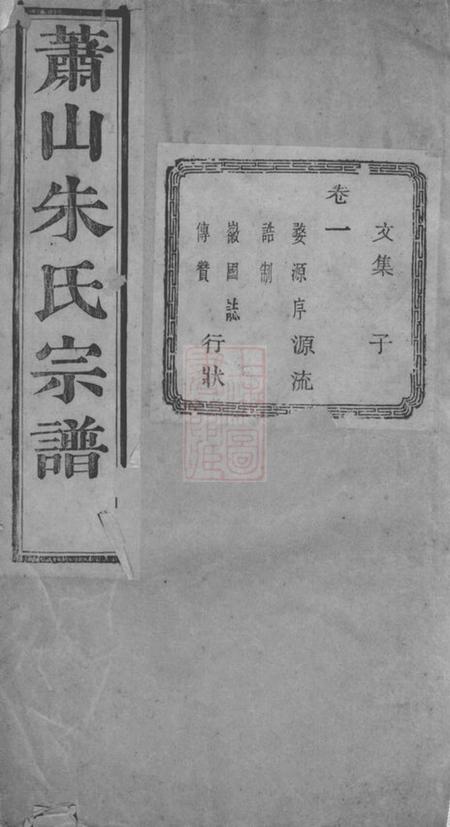 蕭山朱氏宗譜
文集 子
卷一
婺源序 源流
誥制
徽國誌
傳贊 行狀